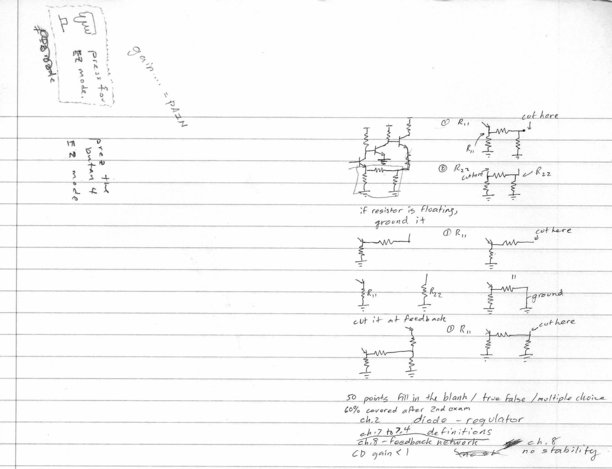 press for
EZ mode.
gain... = PAIN
prez the
butan 4
EZ mode
① R11
cut here
R11
② R22
cut here
R22
if resistor is floating,
ground it
① R11
cut here
R11
R22
"
ground
cut it at feedback
① R11
cut here
50 points fill in the blank / true false / multiple choice
60% covered after 2nd exam
ch.2 diode - regulator
ch.7 to 7.4 definitions
ch.8 - feedback network
ch.8
no stability
CD gain < 1